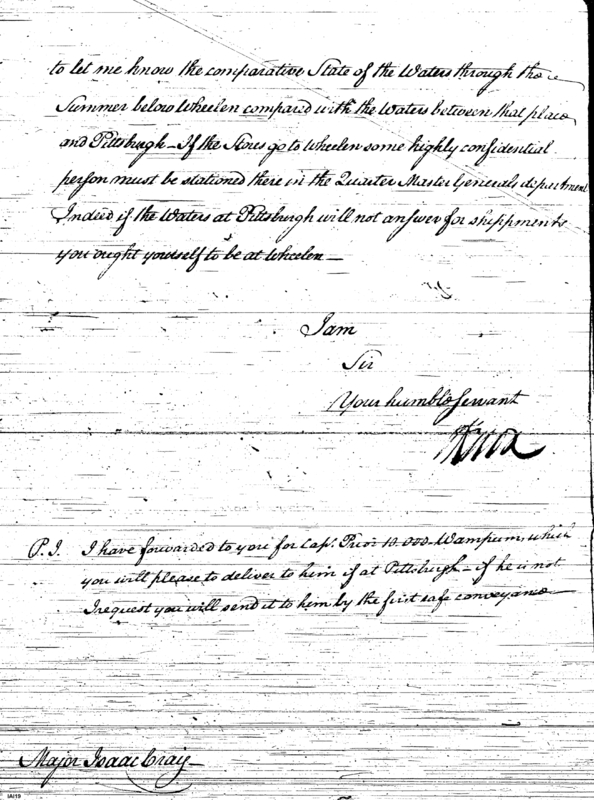 to let me know the comparative State of the Waters through the
Summer below Wheelen compared with the Waters between that place
and Pittsburgh - If the Stores go to Wheelen some highly confidential
person must be stationed there in the Quarter Master Generals department
Indeed if the Waters at Pittsburgh will not answer for shippments
you ought yourself to be at Wheelen —
I am
Sir
Your humble Servant
HKnox
P.S. I have forwarded to you for Capt. Prior 10.000 Wampum, which
you will please to deliver to him if at Pittsburgh - if he is not
I request you will send it to him by the first safe conveyance —
Major Isaac Craig